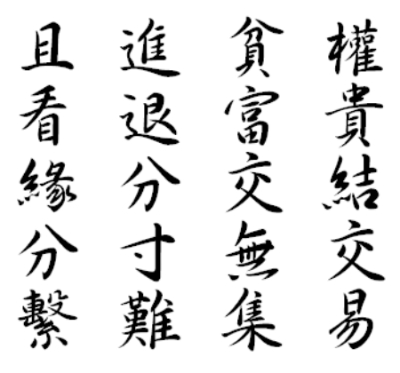 權貴結交易
貧富交無集
進退分寸難
且看緣分繫